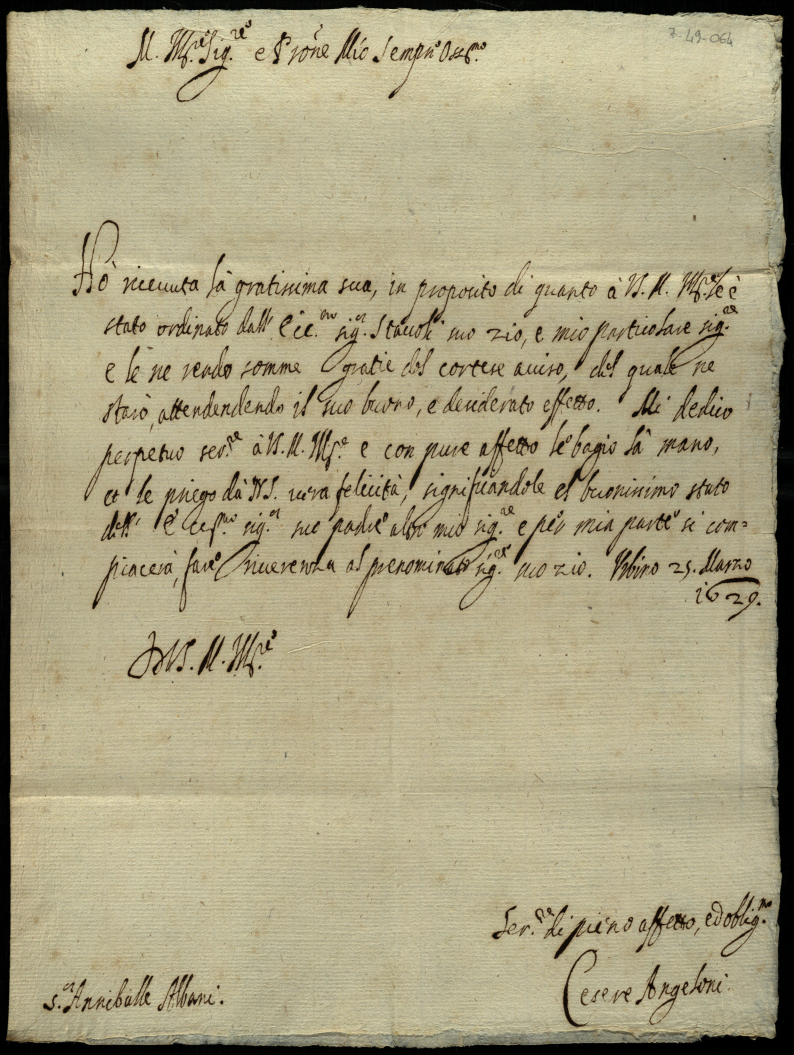 7-49-064
M. Mg.re Sig.re e P'rone Mio Sempre Oss.mo
Hò riceuuta la gratissima sua, in proposito di quanto à V.S. M. Mg.re le è
stato ordinato dall' Ecc.mo sig.r Staccoli suo zio, e mio particolare sig.re
e le ne rendo somme gratie del cortese auiso, del quale ne
starò, attendendendo il suo buono, e desiderato effetto. Mi dedico
perpetuo ser.re à V.S. M. Mg.re e con puro affetto le bagio la mano,
et le priego da N.S. uera felicità, significandole el buonissimo stato
dell' Ecc.mo sig.r suo padre altro mio sig.re e per mia parte si com=
piacerà, fare riuerenza al prenominato sig.re suo zio. Vrbino 25. Marzo
1629.
Di V.S. M. Mg.re
Ser.re di pieno affetto, ed oblig.mo
Cesere Angeloni.
s.r Anniballe Albani.